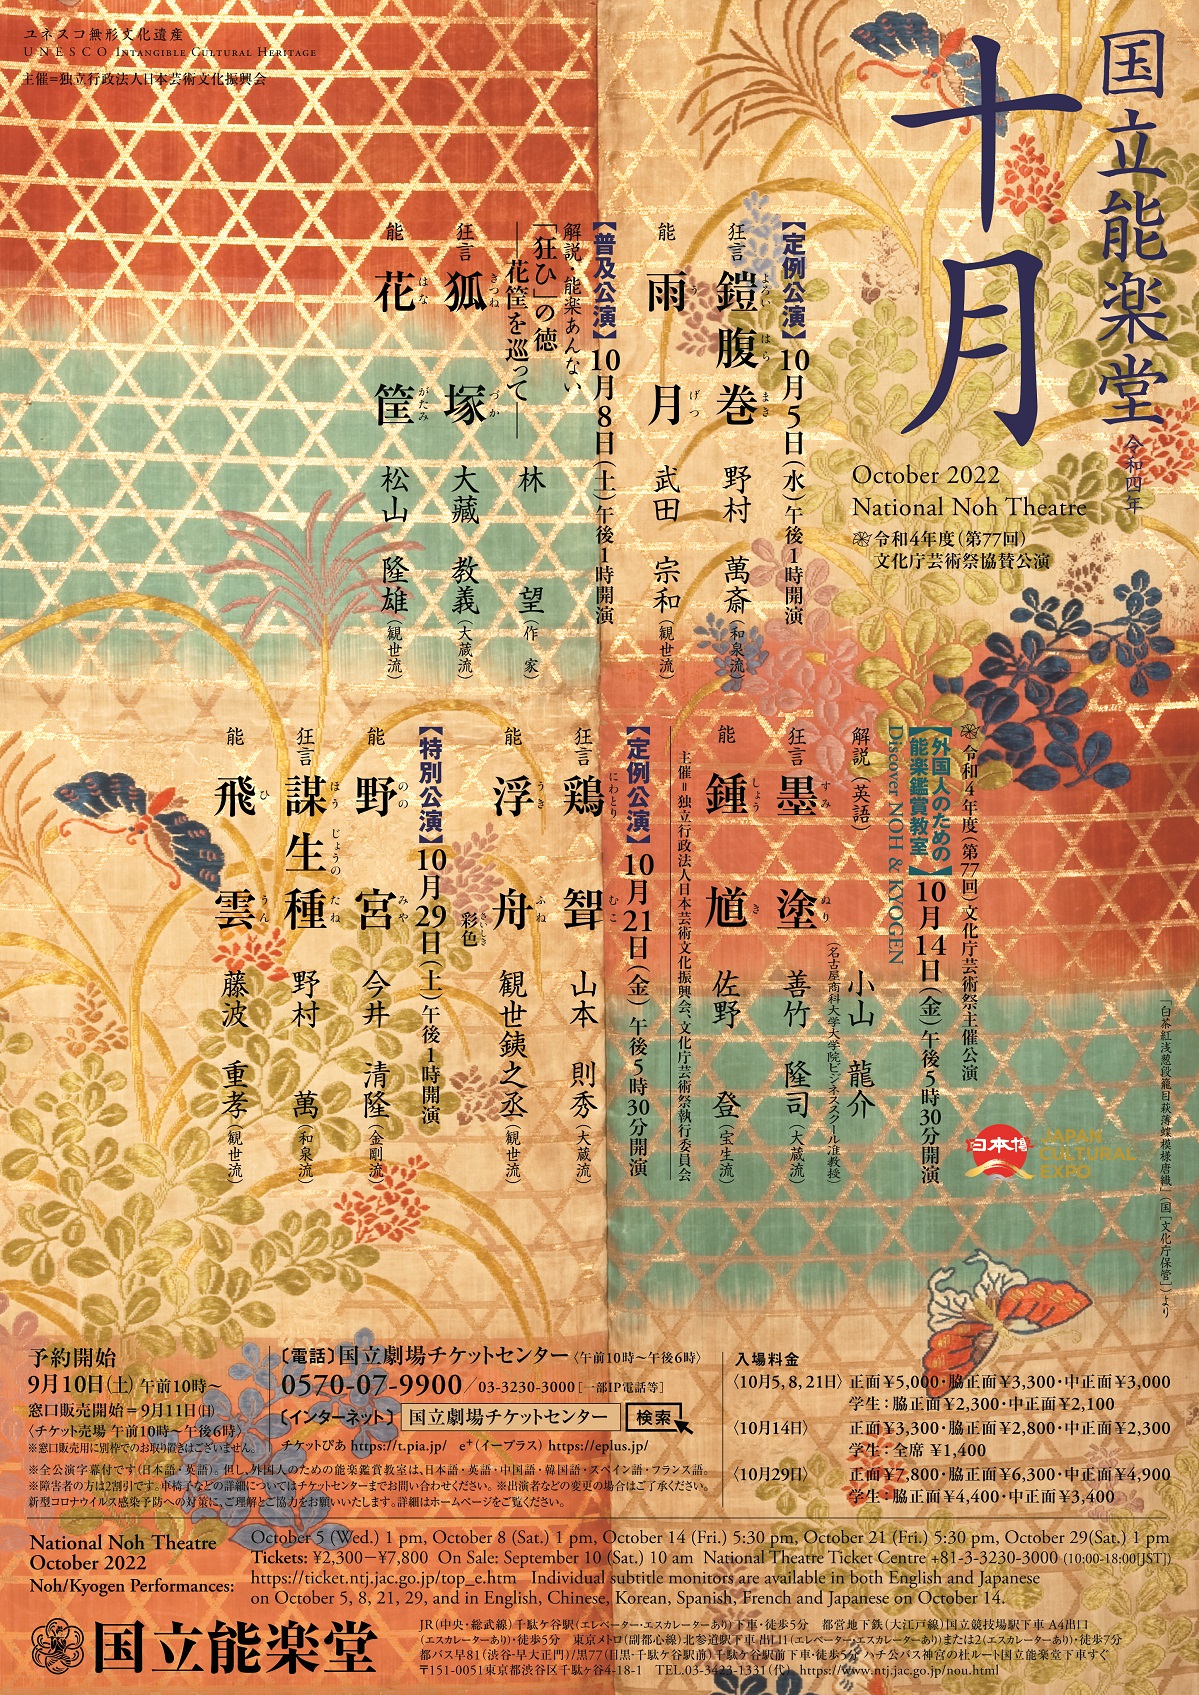 ユネスコ無形文化遺産
UNESCO INTANGIBLE CULTURAL HERITAGE
主催=独立行政法人日本芸術文化振興会
国立能楽堂
令和四年
十月
October 2022
National Noh Theatre
令和4年度(第77回)
文化庁芸術祭協賛公演
【定例公演】10月5日(水)午後1時開演
狂言 鎧腹巻 野村 萬斎(和泉流)
よろい はら まき
能 雨月 武田 宗和(観世流)
う げつ
【普及公演】10月8日(土)午後1時開演
解説・能楽あんない
「狂ひ」の徳
―花筐を巡って― 林 望(作 家)
狂言 狐塚 大藏 教義(大蔵流)
きつね づか
能 花筐 松山 隆雄(観世流)
はな がたみ
令和4年度(第77回)文化庁芸術祭主催公演
【外国人のための
能楽鑑賞教室】10月14日(金)午後5時30分開演
Discover NOH & KYOGEN
解説(英語) 小山 龍介
(名古屋商科大学大学院ビジネススクール准教授)
狂言 墨塗 善竹 隆司(大蔵流)
すみ ぬり
能 鍾馗 佐野 登(宝生流)
しょう き
主催=独立行政法人日本芸術文化振興会、文化庁芸術祭執行委員会
【定例公演】10月21日(金)午後5時30分開演
狂言 鶏聟 山本 則秀(大蔵流)
にわとり むこ
能 浮舟 観世銕之丞(観世流)
うき ふね
彩色
さいしき
【特別公演】10月29日(土)午後1時開演
能 野宮 今井 清隆(金剛流)
のの みや
狂言 謀生種 野村 萬(和泉流)
ほう じょうの たね
能 飛雲 藤波 重孝(観世流)
ひ うん
日本博
JAPAN
CULTURAL
EXPO
「白茶紅浅葱段籠目萩薄蝶模様唐織」(国[文化庁保管])より
予約開始
9月10日(土)午前10時〜
窓口販売開始=9月11日(日)
〈チケット売場 午前10時〜午後6時〉
※窓口販売用に別枠でのお取り置きはございません。
〔電話〕国立劇場チケットセンター〈午前10時〜午後6時〉
0570-07-9900/03-3230-3000[一部IP電話等]
〔インターネット〕国立劇場チケットセンター 検索
チケットぴあ https://t.pia.jp/ e+(イープラス) https://eplus.jp/
※全公演字幕付です(日本語・英語)。但し、外国人のための能楽鑑賞教室は、日本語・英語・中国語・韓国語・スペイン語・フランス語。
※障害者の方は2割引です。車椅子などの詳細についてはチケットセンターまでお問い合わせください。※出演者などの変更の場合はご了承ください。
新型コロナウイルス感染予防への対策に、ご理解とご協力をお願いいたします。詳細はホームページをご覧ください。
入場料金
〈10月5,8,21日〉正面¥5,000・脇正面¥3,300・中正面¥3,000
学生:脇正面¥2,300・中正面¥2,100
〈10月14日〉正面¥3,300・脇正面¥2,800・中正面¥2,300
学生:全席 ¥1,400
〈10月29日〉正面¥7,800・脇正面¥6,300・中正面¥4,900
学生:脇正面¥4,400・中正面¥3,400
National Noh Theatre
October 2022
Noh/Kyogen Performances:
October 5 (Wed.) 1 pm, October 8 (Sat.) 1 pm, October 14 (Fri.) 5:30 pm, October 21 (Fri.) 5:30 pm, October 29(Sat.) 1 pm
Tickets: ¥2,300−¥7,800 On Sale: September 10 (Sat.) 10 am National Theatre Ticket Centre +81-3-3230-3000 (10:00-18:00[JST])
https://ticket.ntj.jac.go.jp/top_e.htm Individual subtitle monitors are available in both English and Japanese
on October 5, 8, 21, 29, and in English, Chinese, Korean, Spanish, French and Japanese on October 14.
国立能楽堂
JR(中央・総武線)千駄ケ谷駅(エレベーター・エスカレーターあり)下車・徒歩5分 都営地下鉄(大江戸線)国立競技場駅下車 A4出口
(エスカレーターあり)・徒歩5分 東京メトロ(副都心線)北参道駅下車 出口1(エレベーター・エスカレーターあり)または2(エスカレーターあり)・徒歩7分
都バス早81(渋谷-早大正門)/黒77(目黒-千駄ケ谷駅前)千駄ケ谷駅前下車・徒歩5分 ハチ公バス神宮の杜ルート国立能楽堂下車すぐ
〒151-0051東京都渋谷区千駄ヶ谷4-18-1 TEL.03-3423-1331(代) https://www.ntj.jac.go.jp/nou.html